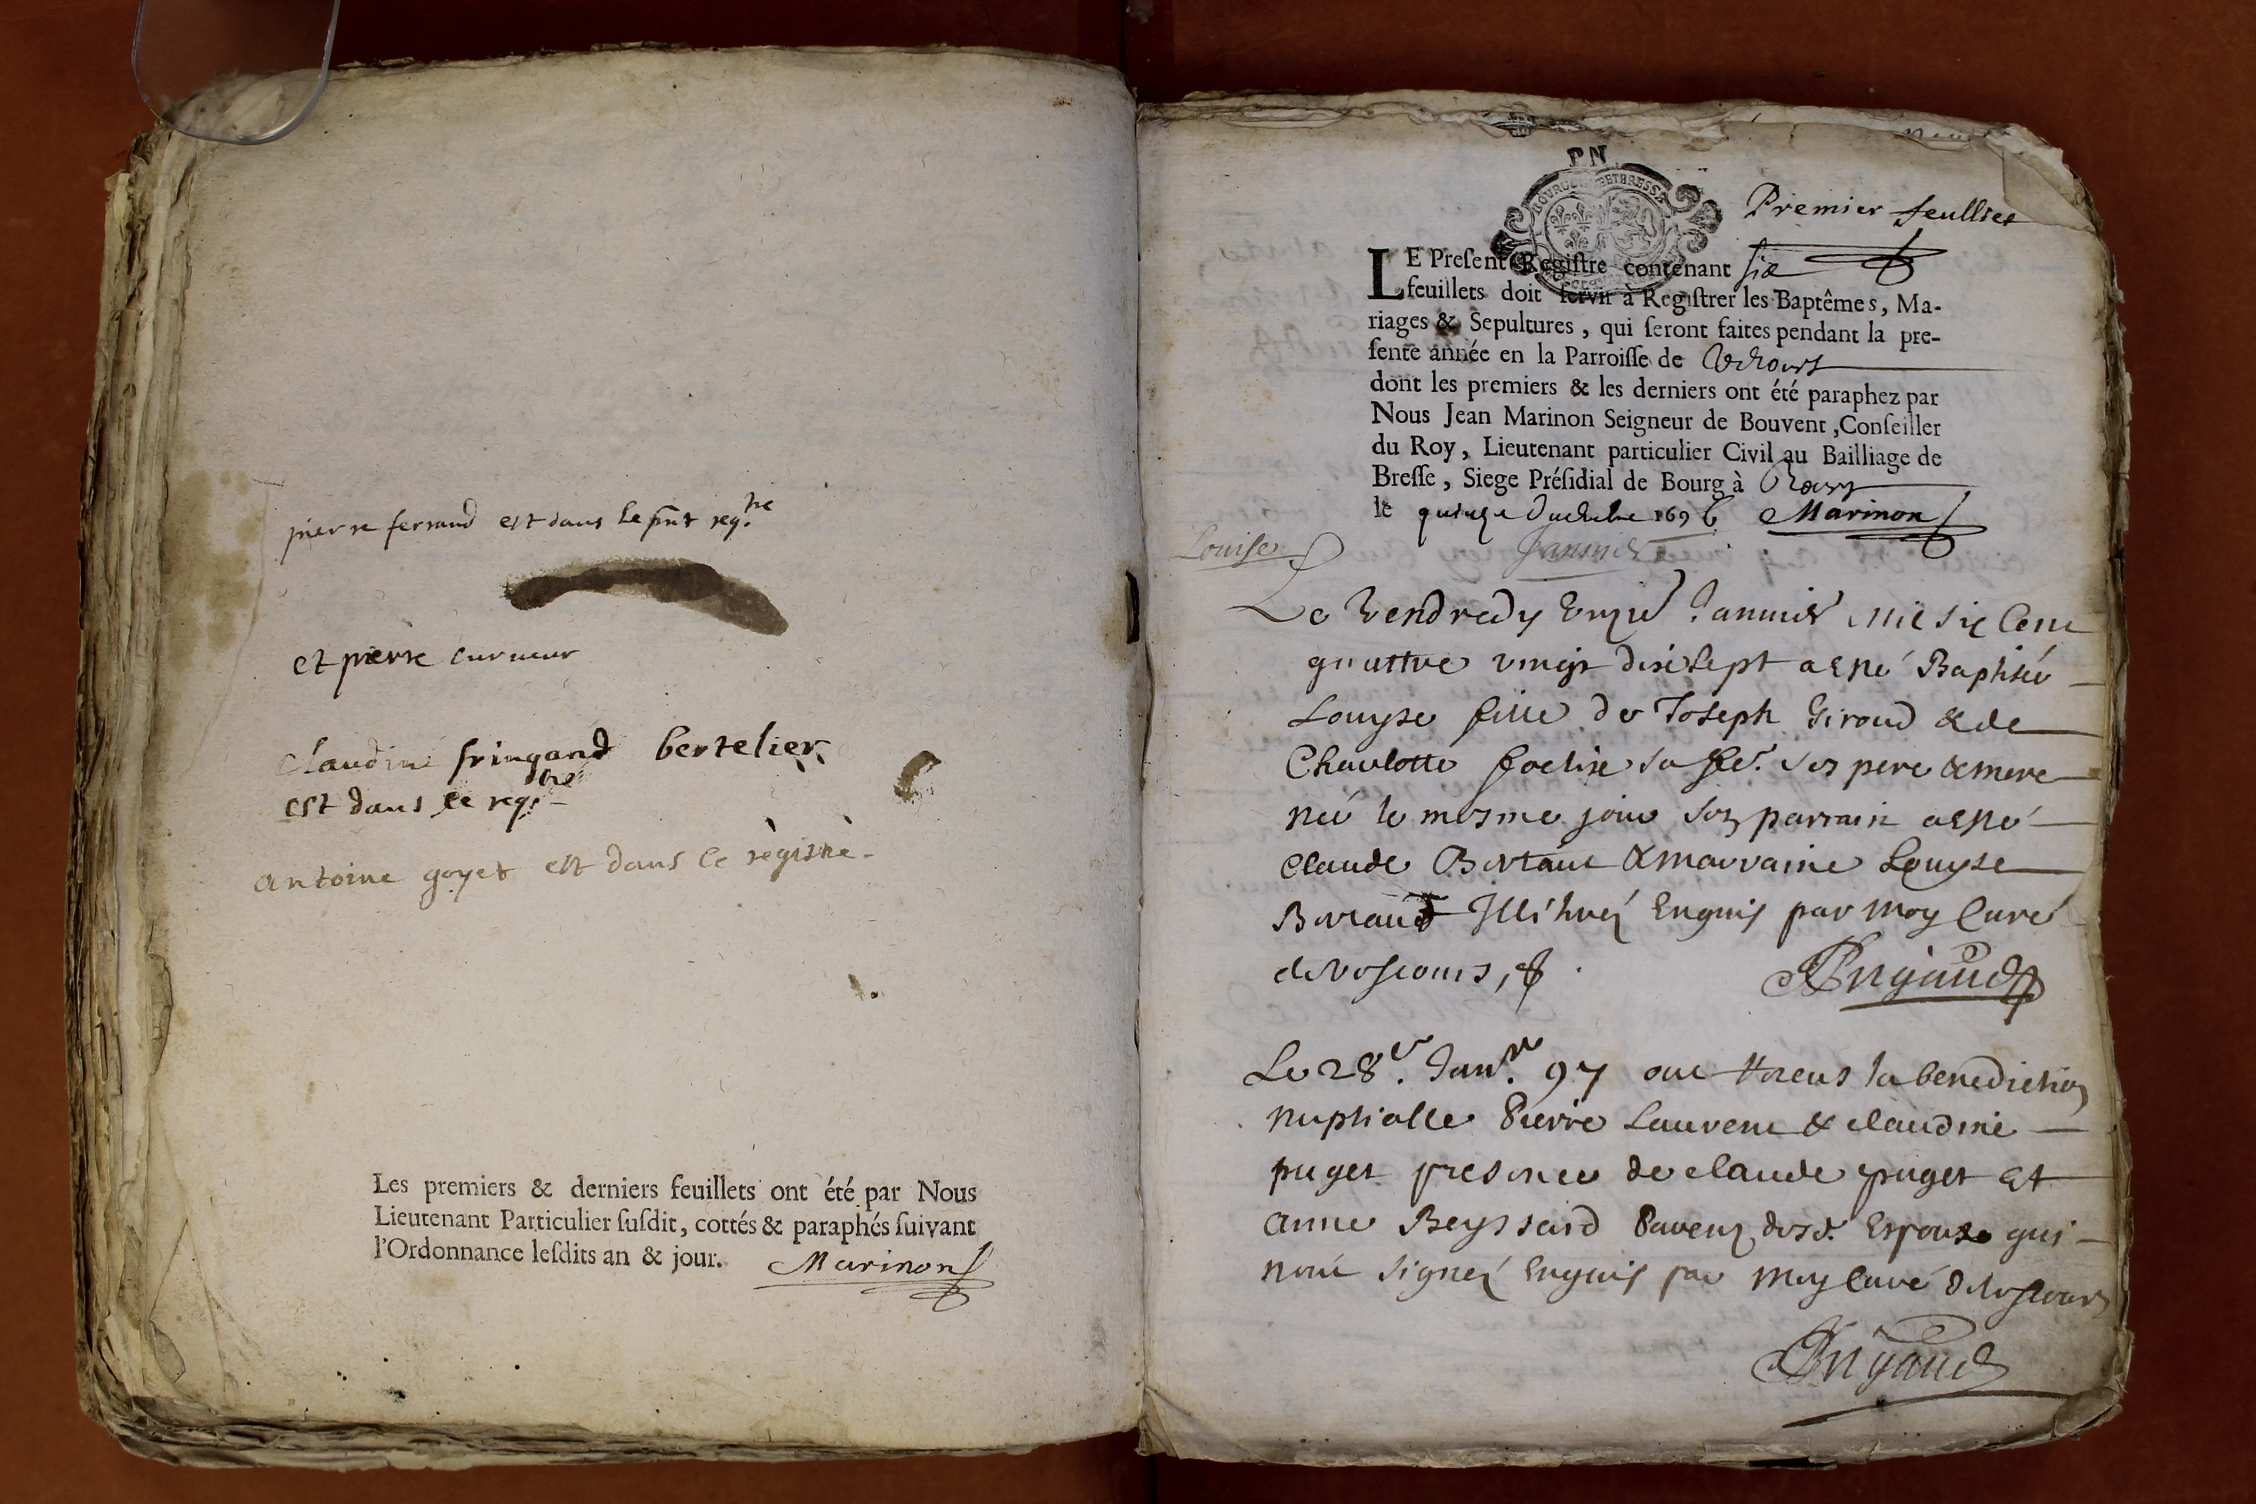 pierre ferrand est dans le pñt reg.tre
et pierre curneur
claudine fringand bertelier
est dans le reg.tre
antoine goyet est dans le registre
Les premiers & derniers feuillets ont été par Nous
Lieutenant Particulier ſuſdit, cottés & paraphés ſuivant
l'Ordonnance leſdits an & jour. Marinon
PN
Premier feulliet
LE Preſent Regiſtre contenant six
feuillets doit ſervir à Regiſtrer les Baptêmes, Ma-
riages & Sepultures, qui ſeront faites pendant la pre-
ſente année en la Parroiſſe de
dont les premiers & les derniers ont été paraphez par
Nous Jean Marinon Seigneur de Bouvent, Conſeiller
du Roy, Lieutenant particulier Civil au Bailliage de
Breſſe, Siege Préſidial de Bourg à Bourg
le quinze 1696 Marinon
Louise Janvier
Le Vendredy Janvier Mil Six Cent
quattre vingt dixsept a esté Baptisée
Louyse fille de Joseph Giroud & de
Charlotte sa fe. ses pere & mere
née le mesme jour son parrain a esté
Claude Bertaut & marraine Louyse
Bertaud Illitrez Enquis par moy Curé
de Voscours,
Le 28e. Janv.r 97 ont receus la benediction
nuptialle Pierre Laurent & Claudine
puget presence de claude puget Et
anne Beyssard Parens desd. Espouse qui
n'ont signez Enquis par moy Curé de Voscours